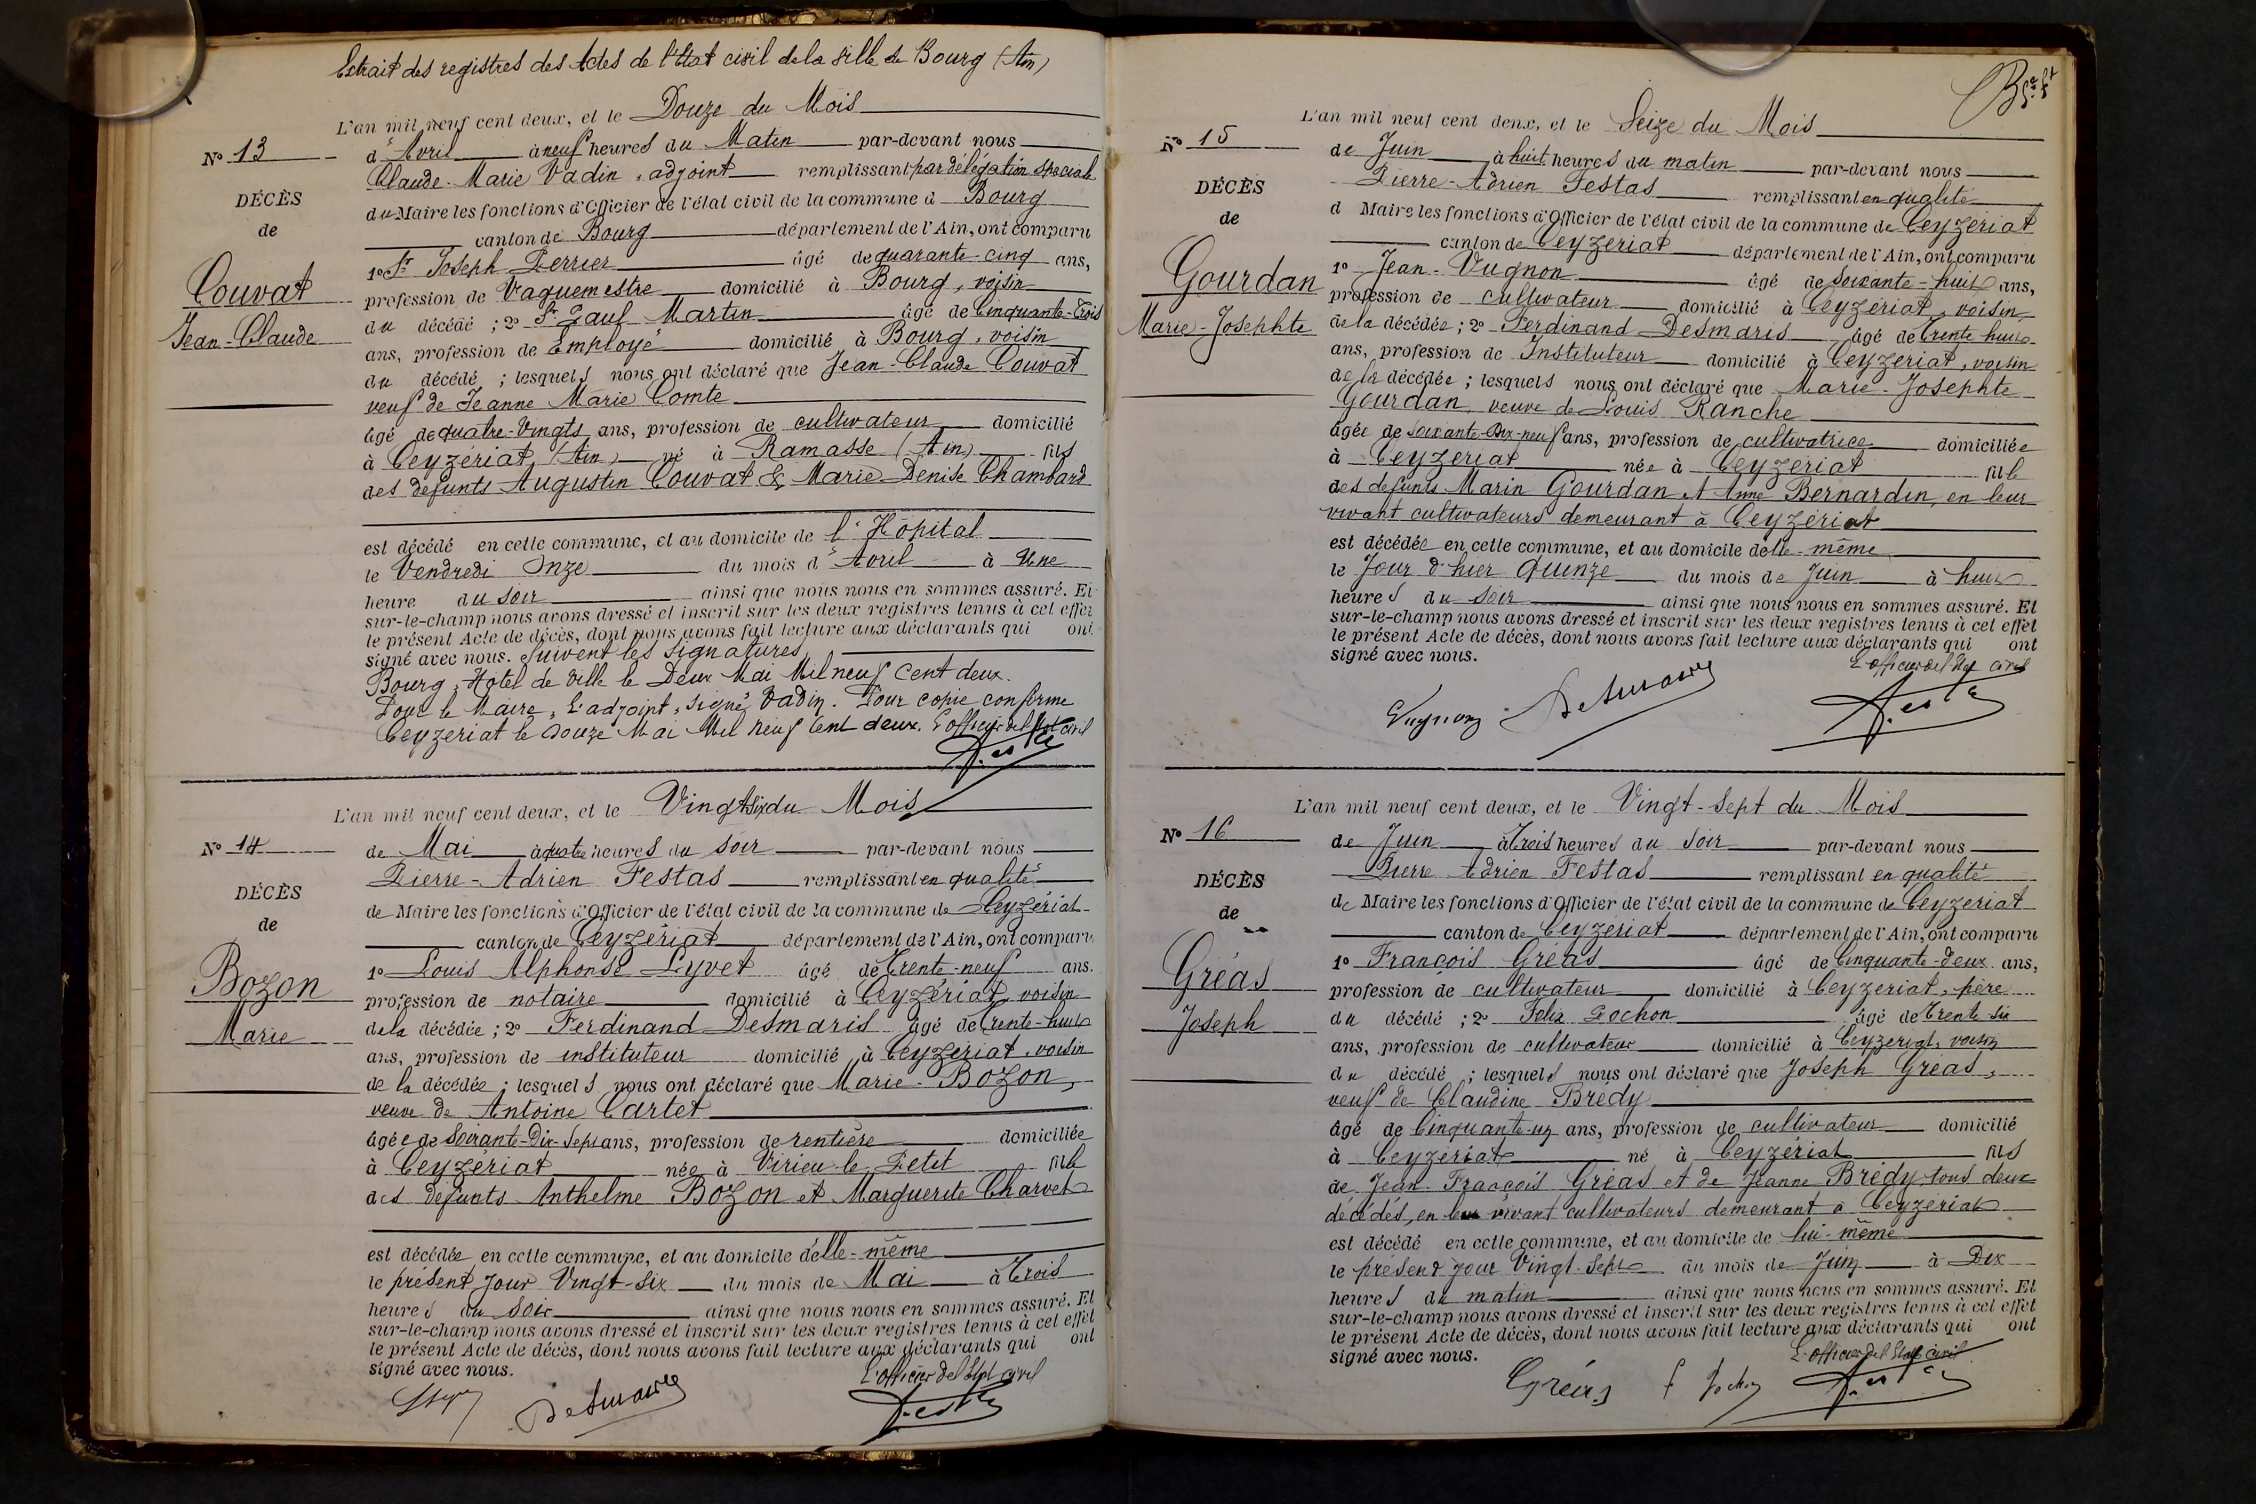 Extrait des registres des Actes de l'Etat civil de la ville de Bourg (Ain)
L'an mil neuf cent deux, et le Douze du Mois
N° 13
d'Avril à neuf heures du Matin par-devant nous
Claude-Marie Vadin, adjoint remplissant par délégation spéciale
DÉCÈS
du Maire les fonctions d'Officier de l'état civil de la commune d Bourg
de
canton de Bourg département de l'Ain, ont comparu
1° Sr Joseph Perrier âgé de quarante-cinq ans,
Couvat
profession de Vaguemestre domicilié à Bourg, voisin
du décédé ; 2° Sr Paul Martin âgé de Cinquante-trois
Jean-Claude
ans, profession de Employé domicilié à Bourg, voisin
du décédé ; lesquels nous ont déclaré que Jean-Claude Couvat
veuf de Jeanne Marie Comte
âgé de quatre-vingts ans, profession de cultivateur domicilié
à Ceyzériat (Ain) né à Ramasse (Ain) fils
des defunts Augustin Couvat & Marie-Denise Chambard
est décédé en cette commune, et au domicile de l'Hôpital
le Vendredi Onze du mois d'Avril à Une
heure du soir ainsi que nous nous en sommes assuré. Et
sur-le-champ nous avons dressé et inscrit sur les deux registres tenus à cet effet
le présent Acte de décès, dont nous avons fait lecture aux déclarants qui ont
signé avec nous. Suivent les signatures
Bourg, Hôtel de Ville le Deux Mai Mil neuf Cent deux.
Pour le Maire, L'adjoint, signé Vadin. Pour copie conforme
Ceyzeriat le douze Mai Mil neuf Cent deux. L'officier de l'Etat civil
Festas
L'an mil neuf cent deux, et le Vingt six du Mois
N° 14
de Mai à quatre heures du soir par-devant nous
Pierre-Adrien Festas remplissant en qualité
DÉCÈS
de Maire les fonctions d'Officier de l'état civil de la commune de Ceyzériat
de
canton de Ceyzériat département de l'Ain, ont comparu
1° Louis Alphonse Lyvet âgé de Trente-neuf ans.
Bozon
profession de notaire domicilié à Ceyzériat, voisin
de la décédée ; 2° Ferdinand Desmaris âgé de Trente-huit
Marie
ans, profession de instituteur domicilié à Ceyzériat, voisin
de la décédée ; lesquels nous ont déclaré que Marie-Bozon,
veuve de Antoine Cartet
âgée de Soixante-Dix-Sept ans, profession de rentière domiciliée
à Ceyzériat née à Virieu-le-Petit fille
des defunts Anthelme Bozon et Marguerite Charvet
est décédée en cette commune, et au domicile d'elle-même
le présent jour Vingt-six du mois de Mai à Trois
heures du soir ainsi que nous nous en sommes assuré. Et
sur-le-champ nous avons dressé et inscrit sur les deux registres tenus à cet effet
le présent Acte de décès, dont nous avons fait lecture aux déclarants qui ont
signé avec nous.
L'officier de l'Etat civil
Desmaris Festas
L'an mil neuf cent deux, et le Seize du Mois
N° 15
de Juin à huit heures du matin par-devant nous
Pierre-Adrien Festas remplissant en qualité
DÉCÈS
d Maire les fonctions d'Officier de l'état civil de la commune de Ceyzériat
de
canton de Ceyzeriat département de l'Ain, ont comparu
1° Jean-Vugnon âgé de Soixante-huit ans,
Gourdan
profession de cultivateur domicilié à Ceyzeriat, voisin
Marie-Josephte
de la décédée ; 2° Ferdinand Desmaris âgé de Trente huit
ans, profession de Instituteur domicilié à Ceyzeriat, voisin
de la décédée ; lesquels nous ont déclaré que Marie-Josephte
Gourdan, veuve de Louis Ranche
âgée de soixante-dix-neuf ans, profession de cultivatrice domiciliée
à Ceyzeriat née à Ceyzériat fille
des defunts Marin Gourdan et Anne Bernardin, en leur
vivant cultivateurs demeurant à Ceyzériat
est décédée en cette commune, et au domicile d'elle-même
le Jour d'hier Quinze du mois de Juin à huit
heures du soir ainsi que nous nous en sommes assuré. Et
sur-le-champ nous avons dressé et inscrit sur les deux registres tenus à cet effet
le présent Acte de décès, dont nous avons fait lecture aux déclarants qui ont
signé avec nous.
L'officier de l'Etat civil
Vugnon Desmaris Festas
L'an mil neuf cent deux, et le Vingt-Sept du Mois
N° 16
de Juin à Trois heures du soir par-devant nous
Pierre Adrien Festas remplissant en qualité
DÉCÈS
de Maire les fonctions d'Officier de l'état civil de la commune de Ceyzeriat
de
canton de Ceyzériat département de l'Ain, ont comparu
1° François Gréas âgé de Cinquante-deux ans,
Gréas
profession de cultivateur domicilié à Ceyzeriat, père
du décédé ; 2° Felix Pochon âgé de Trente six
Joseph
ans, profession de cultivateur domicilié à Ceyzeriat, voisin
du décédé ; lesquels nous ont déclaré que Joseph Gréas,
veuf de Claudine Brédy
âgé de Cinquante-un ans, profession de cultivateur domicilié
à Ceyzériat né à Ceyzériat fils
de Jean-François Gréas et de Jeanne Brédy tous deux
décédés, en leur vivant cultivateurs demeurant à Ceyzériat
est décédé en cette commune, et au domicile de lui-même
le présent jour Vingt-Sept du mois de Juin à Dix
heures du matin ainsi que nous nous en sommes assuré. Et
sur-le-champ nous avons dressé et inscrit sur les deux registres tenus à cet effet
le présent Acte de décès, dont nous avons fait lecture aux déclarants qui ont
signé avec nous.
L'officier de l'Etat civil
Gréas f Pochon Festas